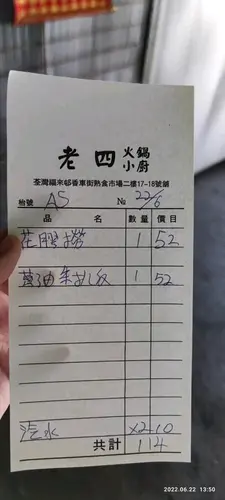 老四 火鍋小廚
荃灣福來邨香車街熟食市場二樓17-18號舖
枱號 A5 № 22/6
品名 數量 價目
花膠撈 1 52
蔥油 1 52
汽水 x2 10
共計 114
2022.06.22 13:50